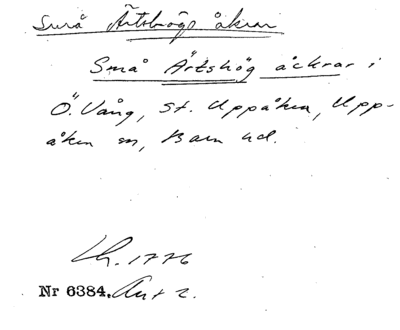 Små Ärtshögs åkrar
Små Ärtshög åckrar i
Ö. Vång, St. Uppåkra, Upp-
åkra sn, Bara hd.
Lh. 1776
Nr 6384. Akt 2.